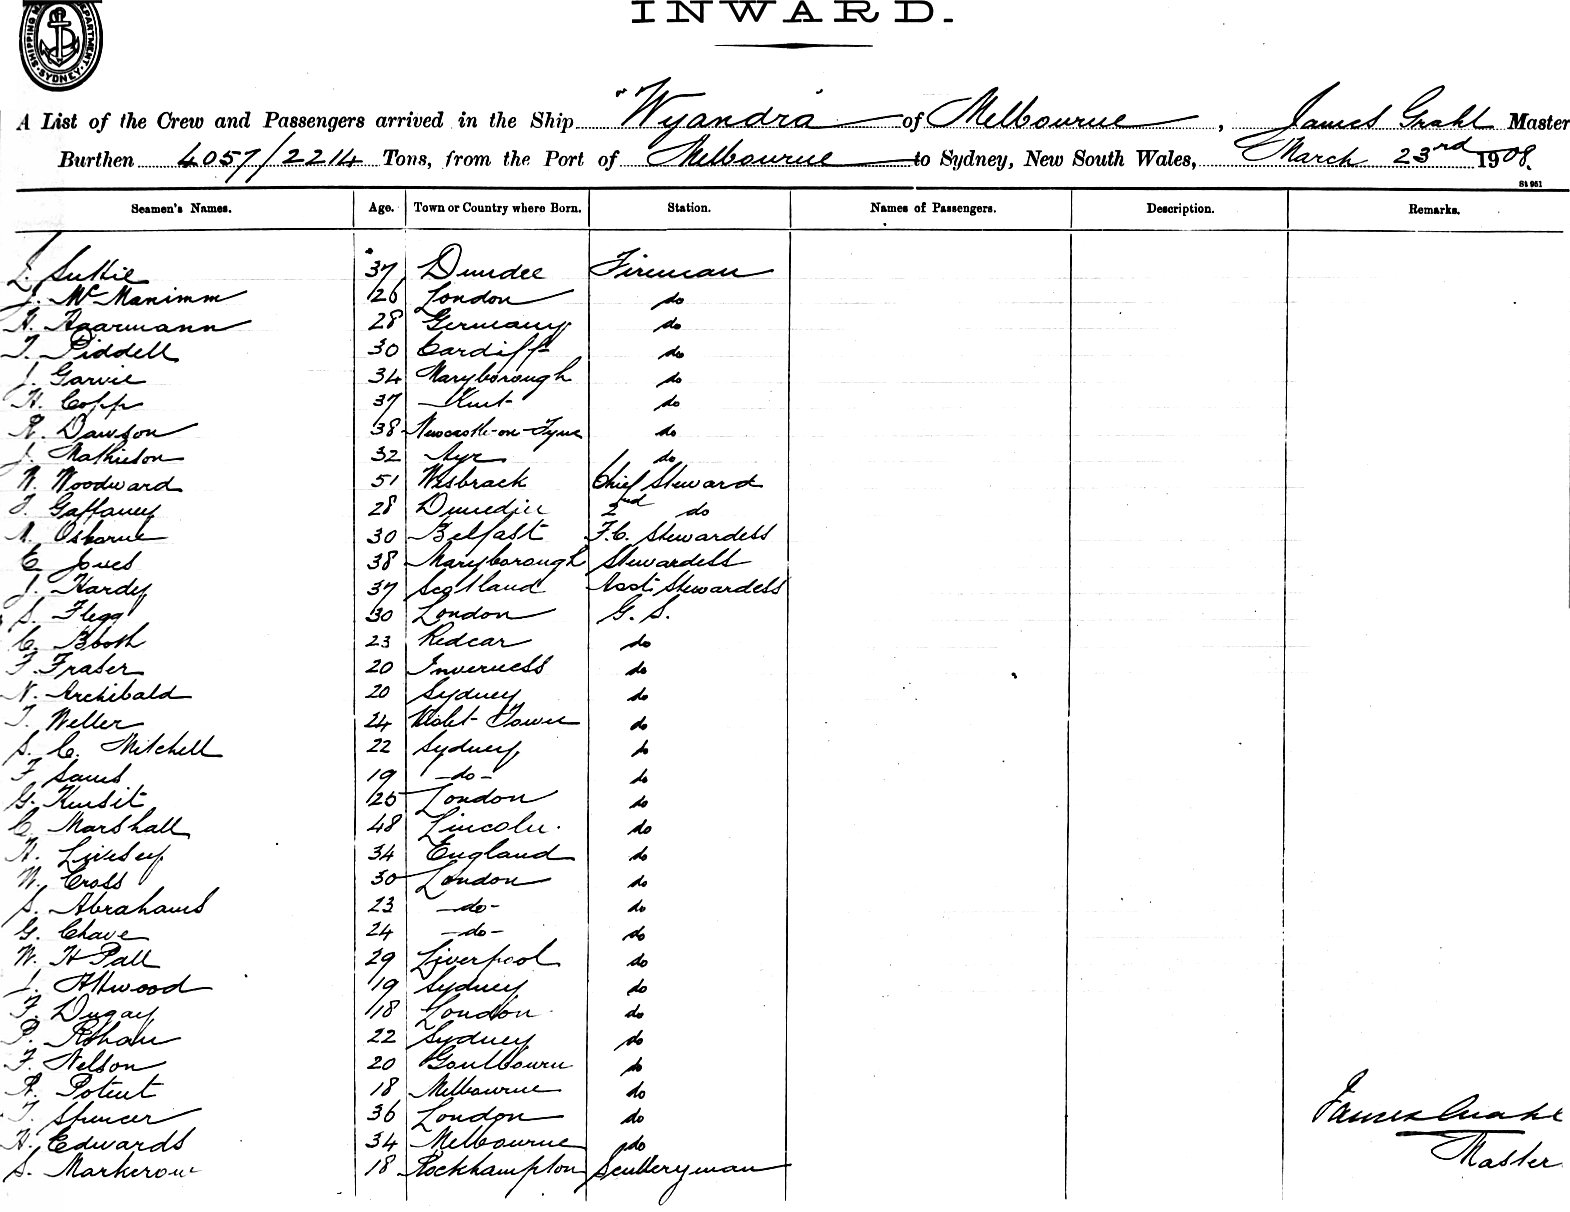 SHIPPING DEPARTMENT. SYDNEY.
INWARD.
A List of the Crew and Passengers arrived in the Ship "Wyandra" of Melbourne, James Grahl Master
Burthen 4057/2214 Tons, from the Port of Melbourne to Sydney, New South Wales, March 23rd 1908.
St 951
Seamen's Names. Age. Town or Country where Born. Station. Names of Passengers. Description. Remarks.
Suttie 37 Dundee Fireman
J. McManimm 26 London do
H. Haarmann 28 Germany do
T. Piddell 30 Cardiff do
J. Garvie 34 Maryborough do
H. Copp 37 Kent do
R. Dawson 38 Newcastle-on-Tyne do
J. Mathieson 32 Ayr do
W. Woodward 51 Chief Steward
T. Gaffaney 28 Dunedin 2nd do
A. Osborne 30 Belfast F.C. Stewardess
E. Jones 38 Maryborough Stewardess
J. Hardy 37 Scotland Asst. Stewardess
S. Flegg 30 London G. S.
C. Booth 23 Redcar do
F. Fraser 20 Inverness do
N. Archibald 20 Sydney do
T. Weller 24 Violet Town do
S. C. Mitchell 22 Sydney do
F. Sams 19 -do- do
G. 26 London do
C. Marshall 48 Lincoln. do
A. Livesey 34 England do
W. Cross 30 London do
S. Abrahams 23 -do- do
G. Chave 24 -do- do
W. H Pall 29 Liverpool do
J. Attwood 19 Sydney do
F. Dugay 18 London do
P. Rohan 22 Sydney do
F. Nelson 20 Goulbourn do
R. Potent 18 Melbourne do
T. Spencer 36 London do
H. Edwards 34 Melbourne do
S. 18 Rockhampton Sculleryman
James Grahl
Master